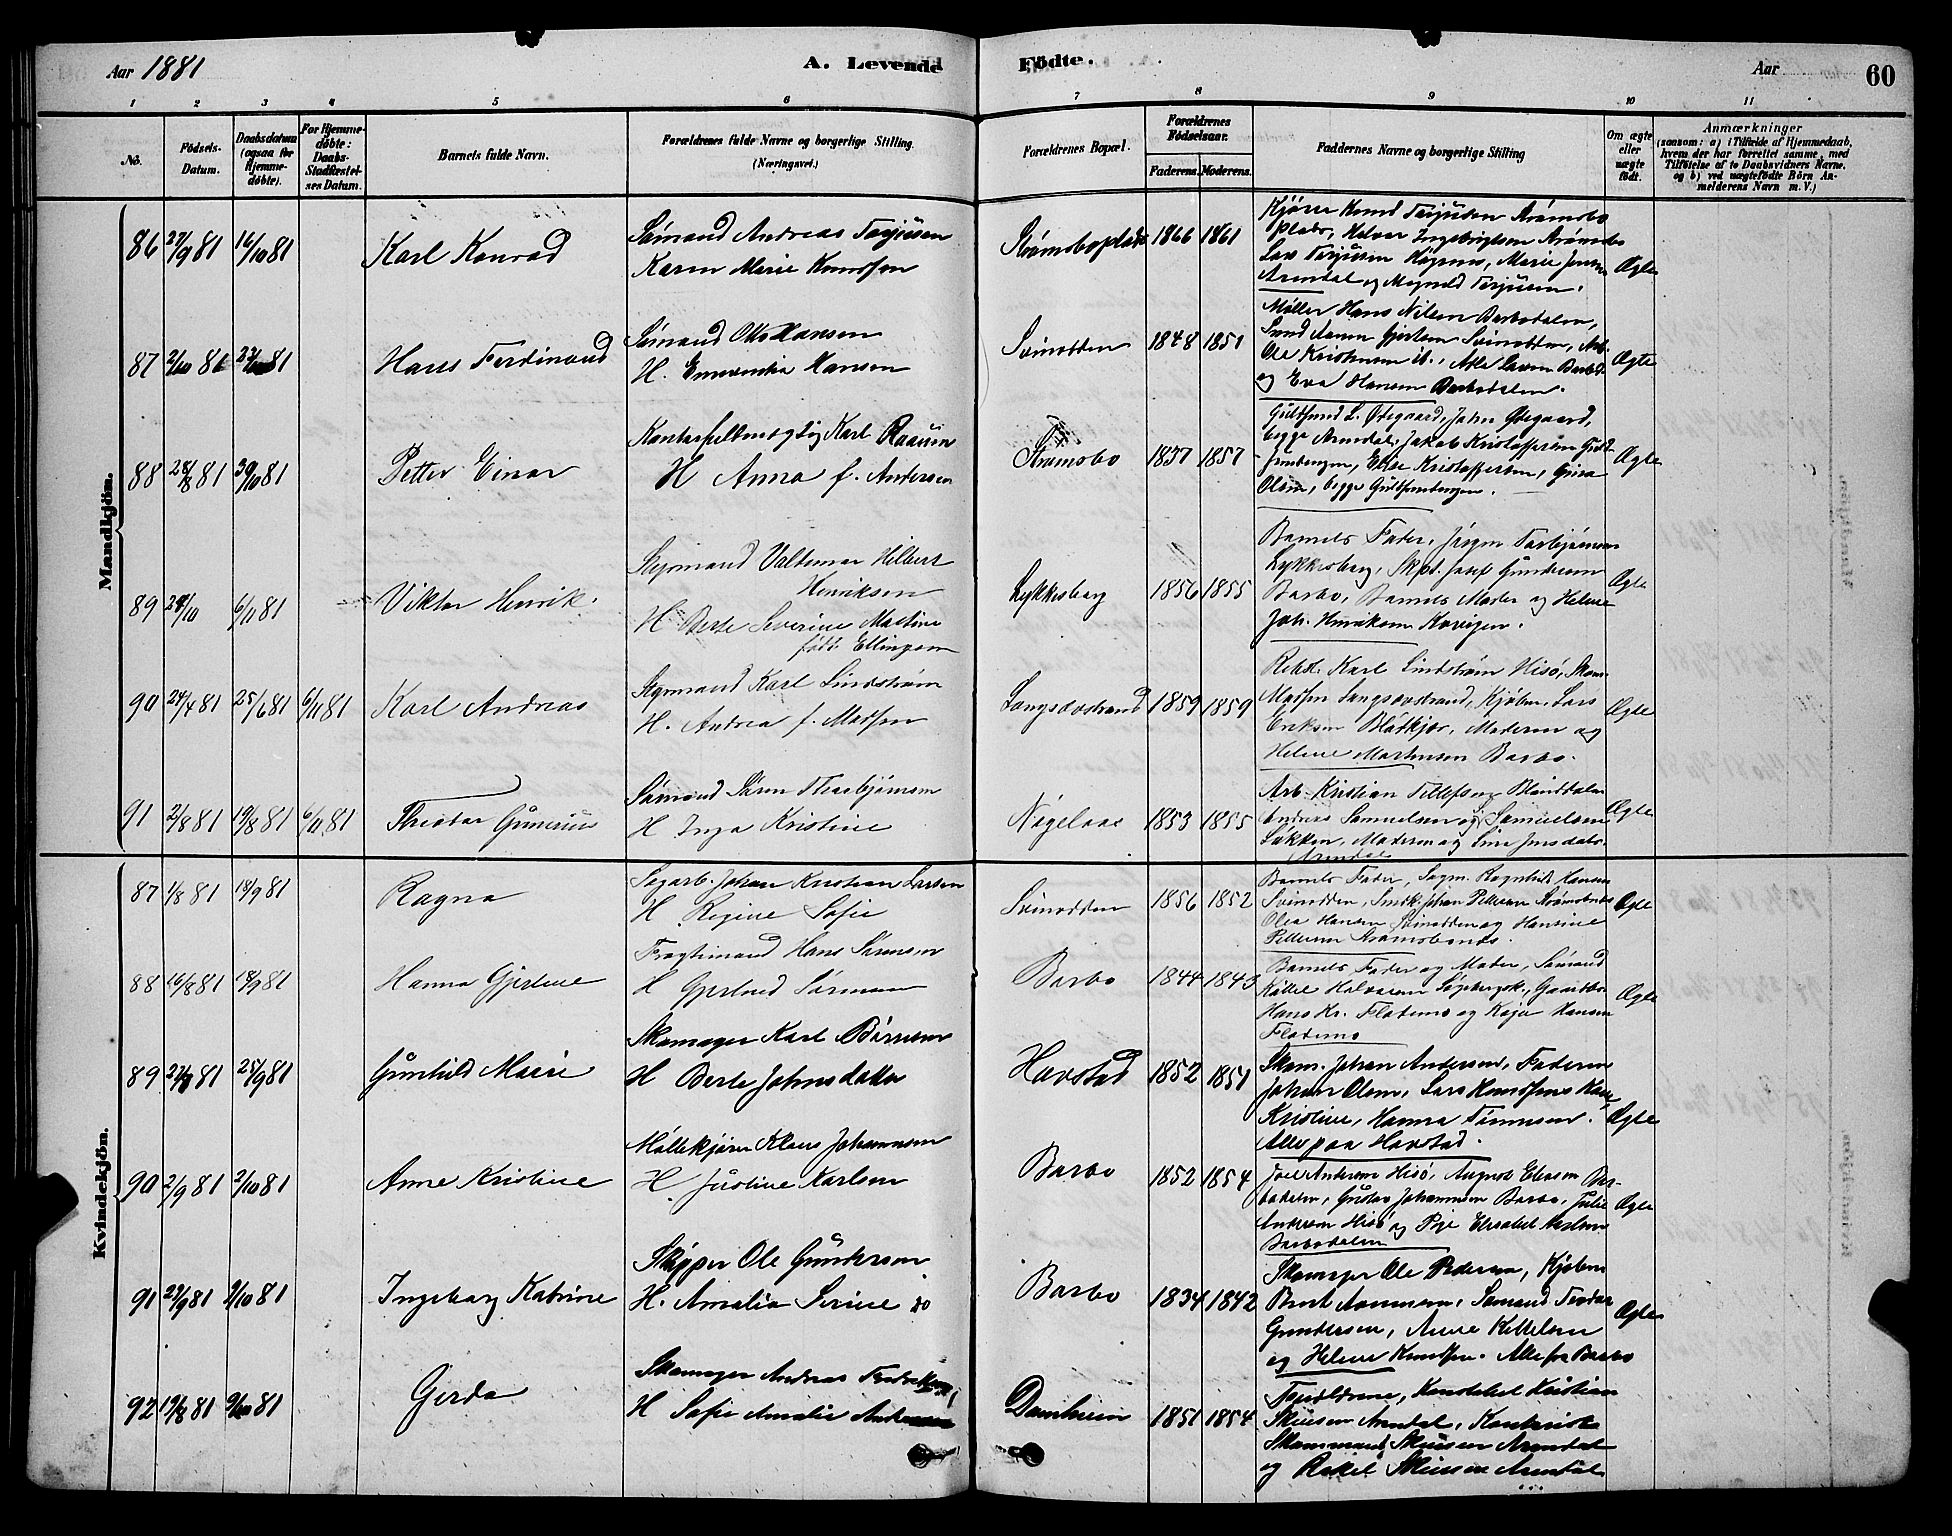 Aar 1881
A. Levende
Födte.
Aar
60
1 2 3 4 5 6 7 8 9 10 11
No.
Födsels-
Datum.
Daabsdatum
(ogsaa for
Hjemme-
döbte).
For Hjemme-
döbte:
Daabs-
Stadfæstel-
ses Datum.
Barnets fulde Navn.
Forældrenes fulde Navne og borgerlige Stilling
(Næringsvei.)
Forældrenes Bopæl.
Forældrenes
Födselsaar.
Faderens. Moderens.
Faddernes Navne og borgerlige Stilling
Om ægte
eller
uægte
födt.
Anmærkninger
(saasom: a) i Tilfælde af Hjemmedaab,
hvem der har forrettet samme, med
Tilföielse af to Daabsvidners Navne,
og b) ved uægtefödte Börn An-
melderens Navn m. V.)
Mandkjön.
86 27/9 81 16/10 81
Karl Konrad
Sømand Andreas Terjusen
Karen Marie Knudsen
Strømsboplads 1866 1861
Kjører Knud Terjusen Strømsbo
plads, Halvor Ingebrigtsen Strømsbo
Lars Terjusen Høgenes, Marie Jensen
Arendal og Magnild Terjusen.
Ægte
87 2/10 81 23/10 81
Hans Ferdinand
Sømand Otto Hansen
H. Emerentia Hansen
Svinodden 1848 1851
Møller Hans Nilsen Barbodalen,
Svinodden, Arb.
Ole Kristensen
og Eva Hansen Barbodalen.
Ægte
88 28/8 81 30/10 81
Petter Einar
Kontorfuldmægtig Karl Raaum
H Anna f. Andersen
Strømsbo 1837 1857
Guldsmed L. Ødegaard, John Ødegaard,
begge Arendal, Jakob Kristoffersen Guld-
smedengen, Else Kristoffersen, Gina
Olsen, begge Guldsmedengen.
Ægte
89 24/10 6/11 81
Viktor Henrik.
Styrmand Valdemar Hilbert
Henriksen
H Berte Severine Martine
født Ellingsen
Lykkesborg 1856 1855
Barnets Fader, Jørgen Torbjørnsen
Lykkesborg, Skpd. Josef Gundersen
Barbo, Barnets Moder og Helene
Joh. Henriksen Kovigen.
Ægte
90 24/4 81 25/6 81 6/11 81
Karl Andreas
Styrmand Karl Lindstrøm
H. Andrea f. Madsen
Langsævstrand 1859 1859
Rebsl. Karl Lindstrøm Hisø, Skom.
Madsen Langsævstrand, Kjøbm. Lars
Eriksen Blødkjær, Moderen og
Helene Martinsen Barbo.
Ægte
91 2/8 81 19/8 81 6/11 81
Theodor Gunerius
Sømand Søren Thorbjørnsen
H Inga Kristine
Nøgelaas 1853 1855
Arb. Kristian Tellefsen
Andreas Samuelsen og Samuelsen
Løkken, Moderen og
Arendal
Ægte
Kvindekjön.
87 1/8 81 18/9 81
Ragna
Sagarb. Johan Kristian Larsen
H Regine Sofie
Svinodden 1856 1852
Barnets Fader, Sagm. Ragnhild Hansen
Svinodden, Smdk. Johan Pettersen Strømsbonæs
Olea Hansen Svinodden og Hansine
Pettersen Strømsbonæs.
Ægte
88 16/8 81 18/9 81
Hanna Gjertine
Fragtemand Hans Sørensen
H Gjertrud Sørensen
Barbo 1844 1843
Barnets Fader og Moder, Sømand
Kittel Halvorsen
Hans Kr. Flademo og Kaja Hansen
Flademo
Ægte
89 81 25/9 81
Gunhild Marie
Skomager Karl Børresen
H Berte Johnsdatter
Havstad 1852 1851
Skom. Johan Andersen, Faderen
Johan Olsen, Lars Knudsens Kone
Kristine, Hanna Tønnesen.
Alle paa Havstad.
Ægte
90 2/9 81 2/10 81
Anne Kristine
Møllekjører Klaus Johannesen
H. Justine Karlsen
Barbo 1852 1854
Joel Andersen Hisø, August Ellersen Bar-
bodalen, Gustav Johannesen Barbo, Julie
Andersen Hisø og Pige Elisabet Karlsen
Barbodalen
Ægte
91 29/9 81 9/10 81
Ingeborg Katrine
Skipper Ole Gundersen
H. Amalia Serine do
Barbo 1834 1842
Skomager Ole Pedersen, Kjøbm.
Bernt Aanensen, Sømand Teodor
Gundersen, Anne Kittelsen
og Helene Knudsen. Alle fra Barbo
Ægte
92 19/8 81 9/10 81
Gerda
Skomager Andreas Fredriksen
H Sofie Amalie Andersen
Damheien 1851 1854
Forældrene, Konstabel Kristian
Skiesen Arendal, Kontorist
Skiesen Arendal
og Rakel Skiesen Arendal